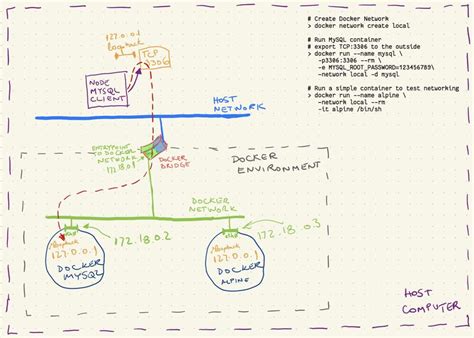 # Create Docker Network
> docker network create local
# Run MySQL container
# export TCP:3306 to the outside
> docker run --name mysql \
-p3306:3306 --rm \
-e MYSQL_ROOT_PASSWORD=123456789\
-network local -d mysql
# Run a simple container to test networking
> docker run --name alpine \
-network local --rm
-it alpine /bin/sh
127.0.0.1
loopback
TCP
3306
NODE
MYSQL
CLIENT
HOST
NETWORK
ENTRYPOINT
TO DOCKER
NETWORK
172.18.0.1
DOCKER
BRIDGE
DOCKER
ENVIRONMENT
DOCKER
NETWORK
172.18.0.2
172.18.0.3
loopback
127.0.0.1
DOCKER
MYSQL
loopback
127.0.0.1
DOCKER
ALPINE
HOST
COMPUTER